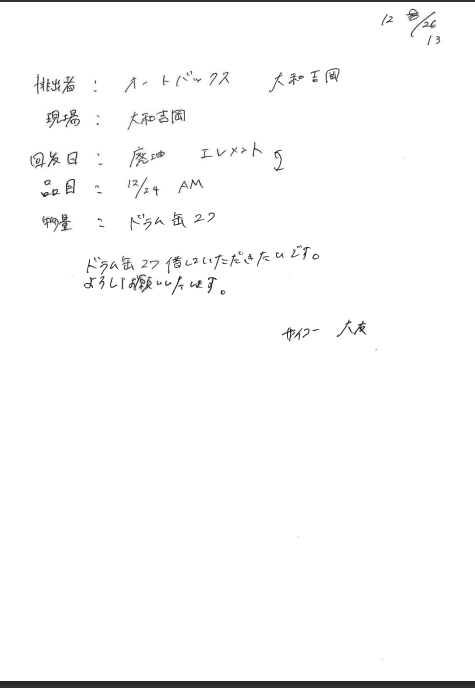 12 /26
13
排出者 : オートバックス 大和吉岡
現場 : 大和吉岡
回収日 : 廃油 エレメント
品目 : 12/24 AM
物量 : ドラム缶2つ
ドラム缶2つ借していただきたいです。
よろしくお願いいたします。
サイコー 大友